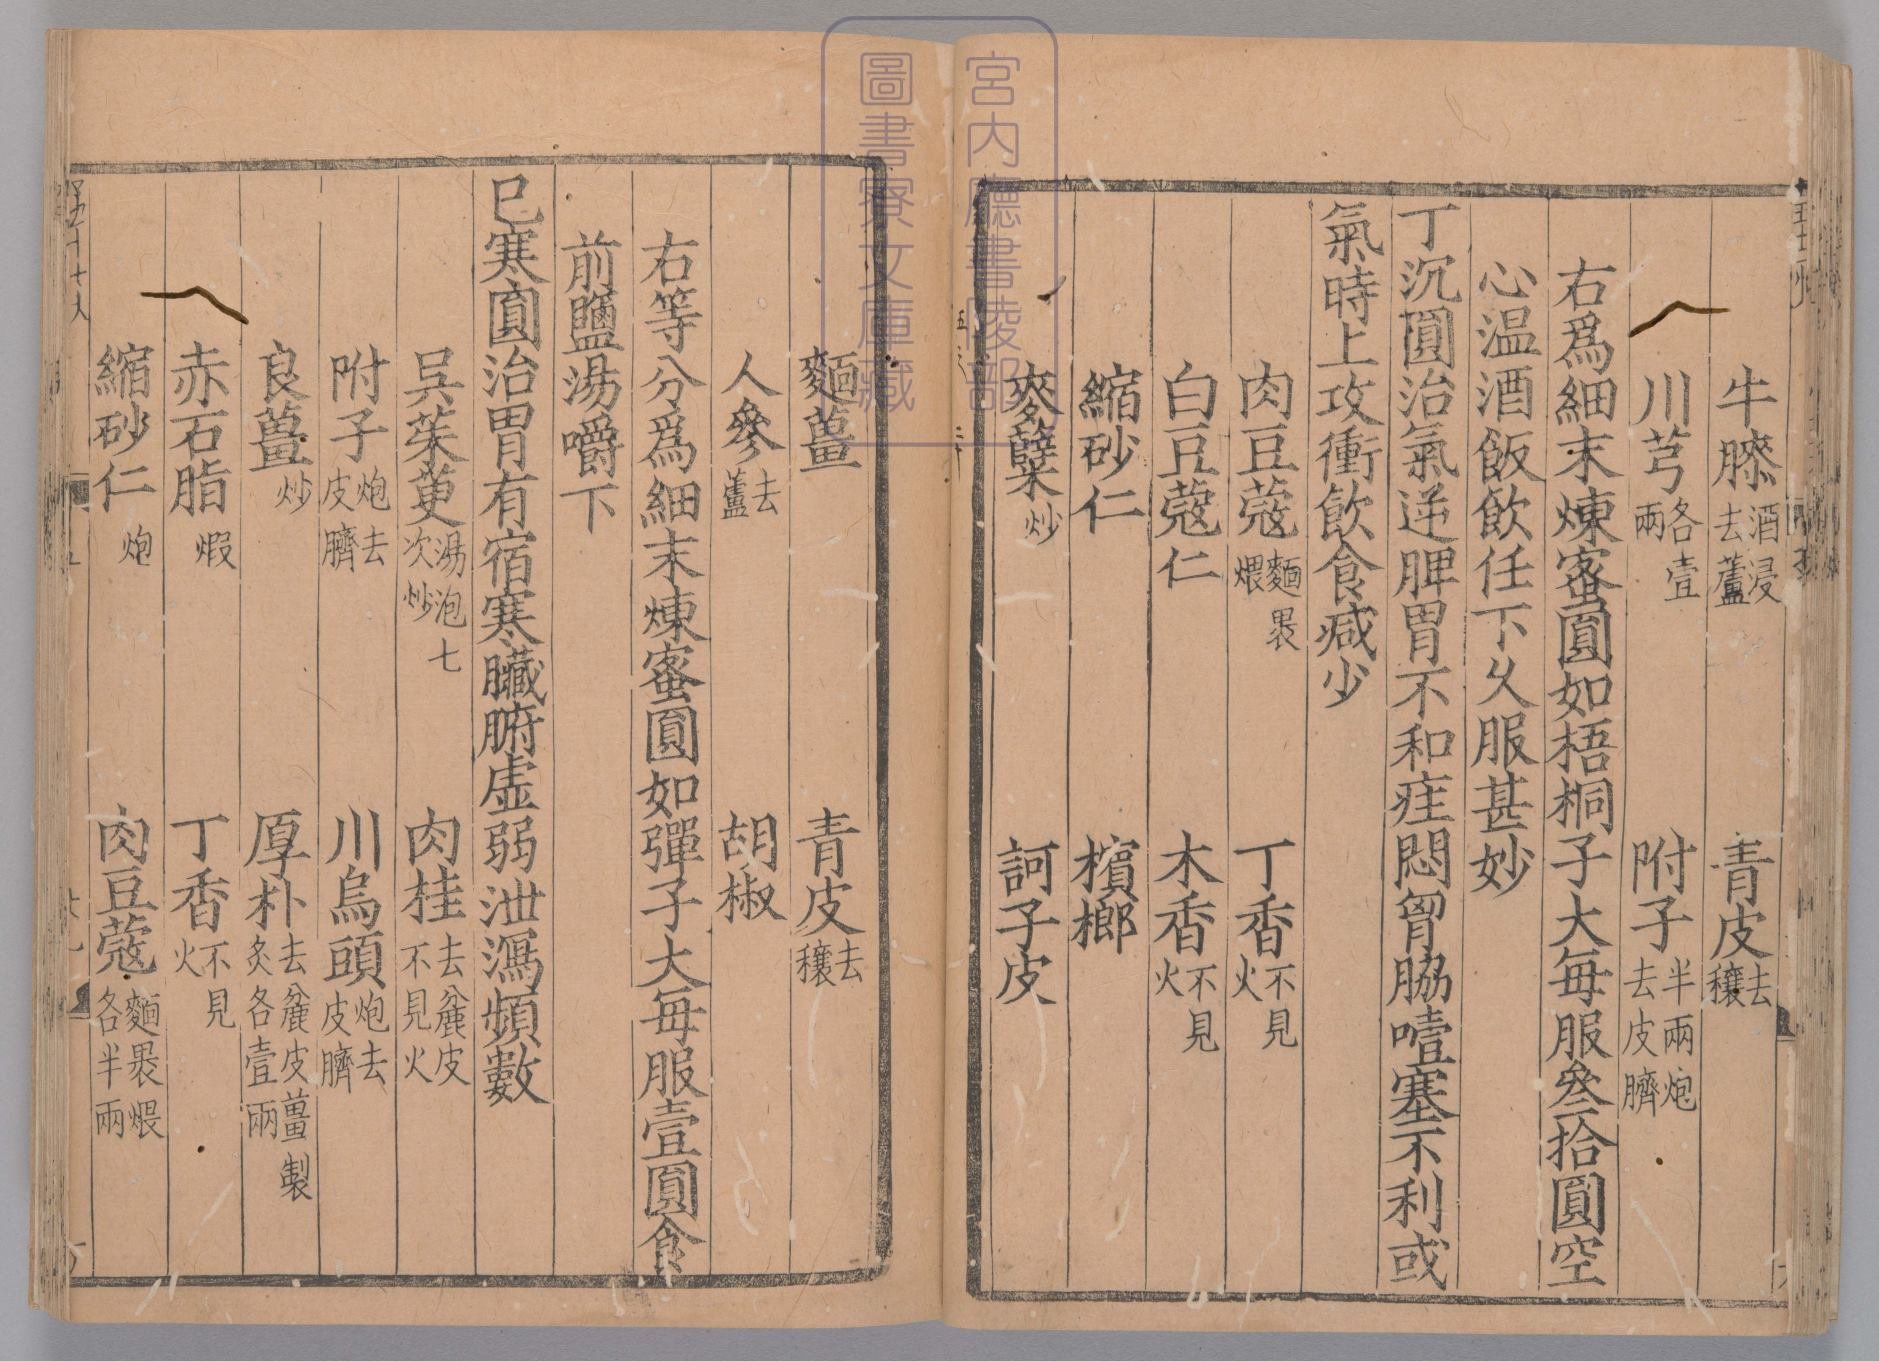 牛膝酒浸去蘆　青皮去穰
川芎各壹兩　附子半兩炮去皮臍
右爲細末煉蜜圓如梧桐子大每服叁拾圓空
心温酒飯飲任下久服甚妙
丁沉圓治氣逆脾胃不和疰悶胷脇噎塞不利或
氣時上攻衝飲食减少
肉豆蔻麵褁煨　丁香不見火
白豆蔻仁　木香不見火
縮砂仁　檳榔
麥糵炒　訶子皮
麵薑　青皮去穰
人參去蘆　胡椒
右等分爲細末煉蜜圓如彈子大每服壹圓食
前鹽湯嚼下
已寒圓治胃有宿寒臟腑虛弱泄瀉頻數
吳茱萸湯泡七次炒　肉桂去麄皮不見火
附子炮去皮臍　川烏頭炮去皮臍
良薑炒　厚朴去麄皮薑製炙各壹兩
赤石脂煆　丁香不見火
縮砂仁炮　肉豆蔻麵褁煨各半兩
宮内廳書陵部
圖書寮文庫藏